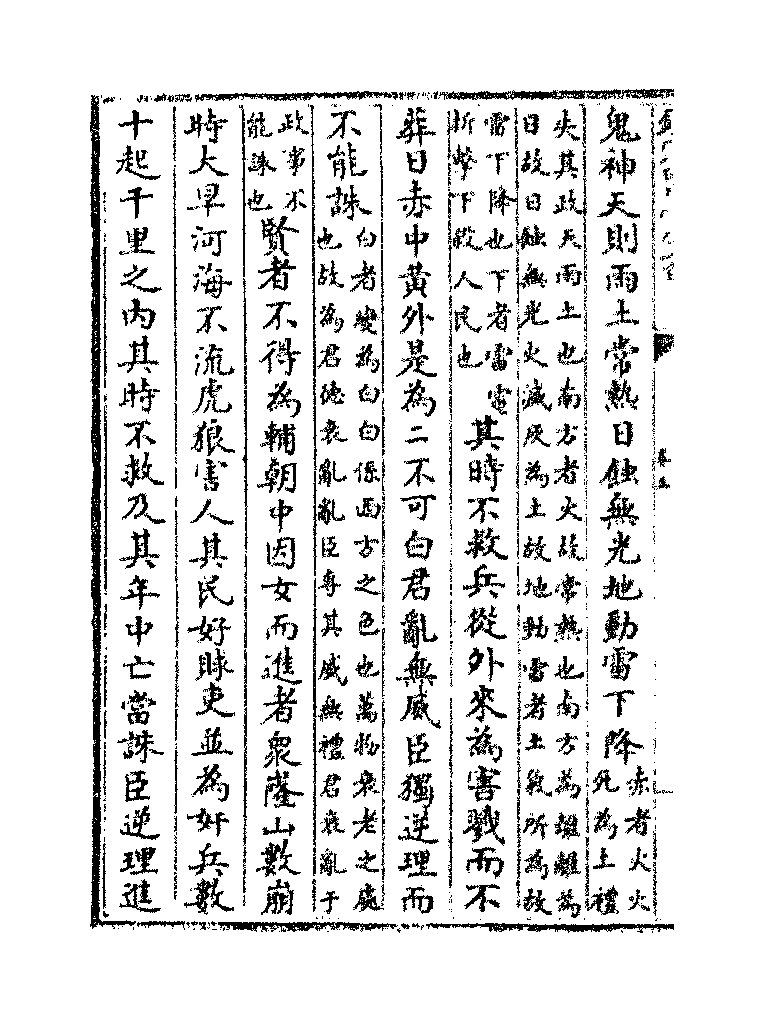 鬼神天則雨土常熱日蝕無光地動雷下降赤者火火死為土禮
失其政天雨土也南方者火故常熱也南方為離離為
日故日蝕無光火滅灰為土故地動雷者土氣所為故
雷下降也下者雷電折擊下殺人民也其時不救兵從外來為害戮而不
葬日赤中黃外是為二不可白君亂無威臣獨逆理而
不能誅白者變為白白係西方之色也萬物衰老之處也故為君德衰亂亂臣專其威無禮君衰亂于
政事不能誅也賢者不得為輔朝中因女而進者衆山數崩
時大旱河海不流虎狼害人其民好賕吏並為奸兵數
十起千里之內其時不救及其年中亡當誅臣逆理進
卷五